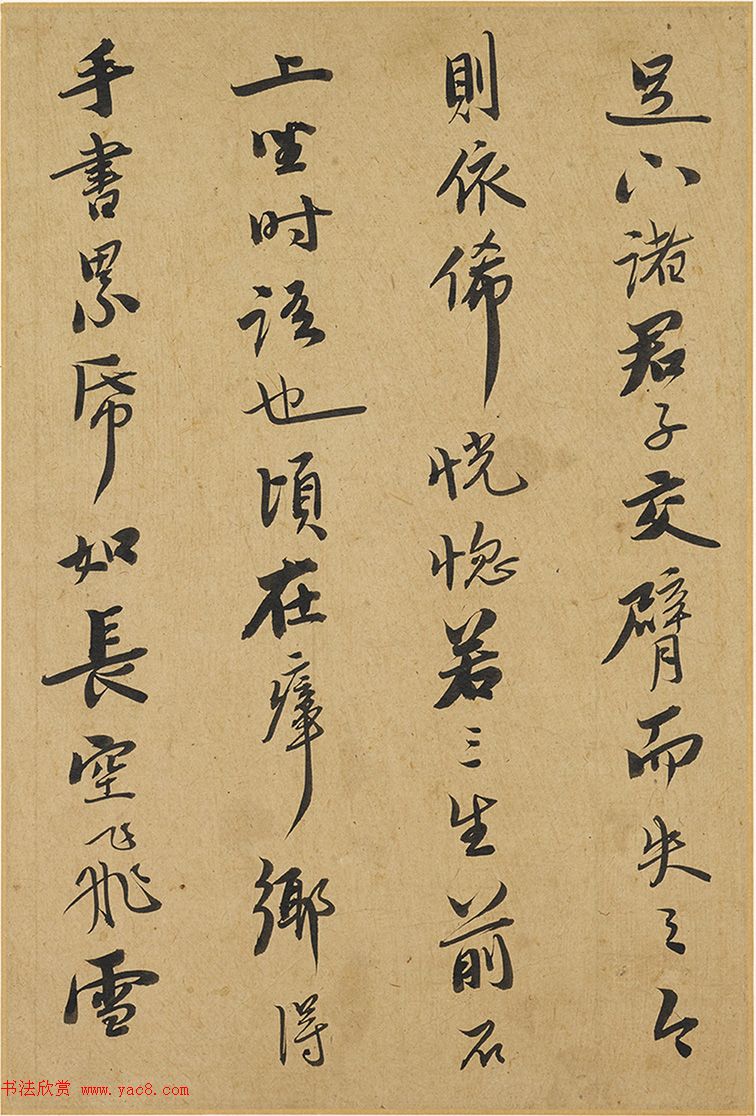 足下諸君子交臂而失之今
則依俙恍惚若三生前石
上坐时語也頃在瘴鄉得
手書累帋如長空飛雪
书法欣赏 www.yac8.com